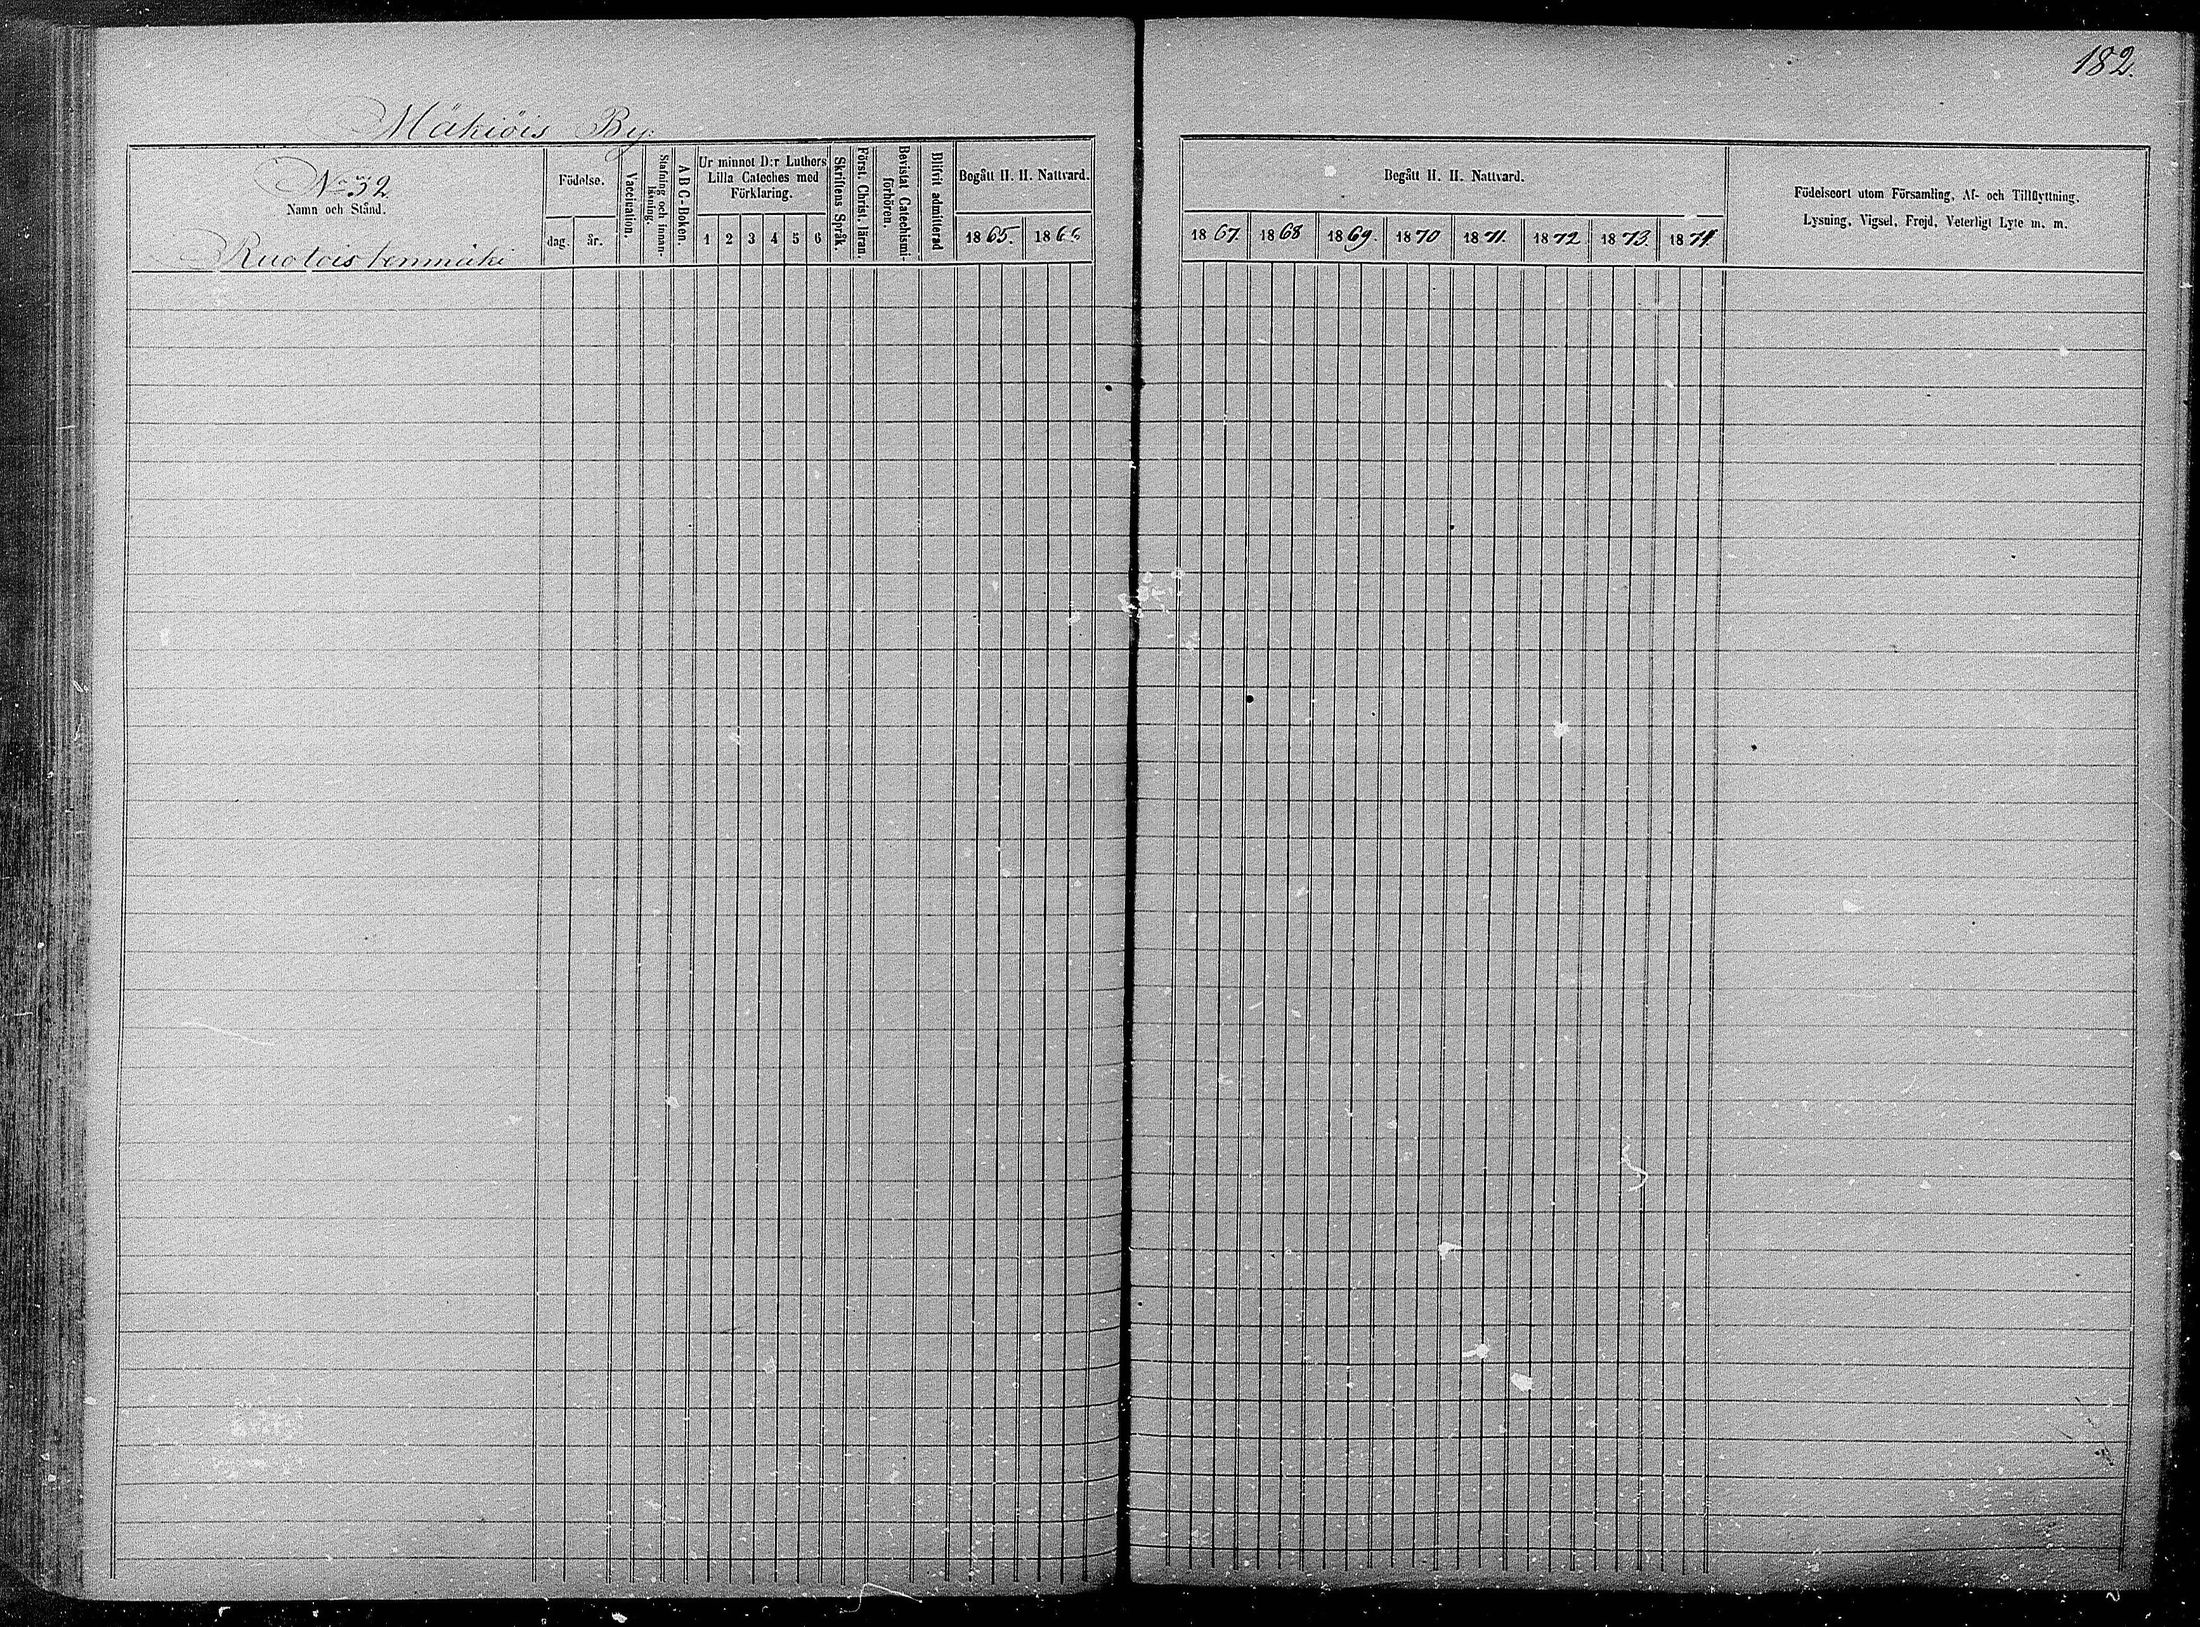 182.
Mäkiöis By.
No 32
Namn och Stånd.
Ruotoistenmäki
Födelse.
dag. år.
Vaccination.
Stafning och innan-
läsning.
A B C-Boken.
Ur minnet D:r Luthers
Lilla Cateches med
Förklaring.
1 2 3 4 5 6
Skriftens Språk.
Först. Christ. läran.
Bevistat Catechismi-
förhören.
Blifvit admitterad
Begått H. H. Nattvard.
1865. 1866
Begått H. H. Nattvard.
1867. 1868 1869. 1870 1871. 1872 1873. 1874.
Födelseort utom Församling, Af- och Tillflyttning,
Lysning, Vigsel, Frejd, Veterligt Lyte m. m.